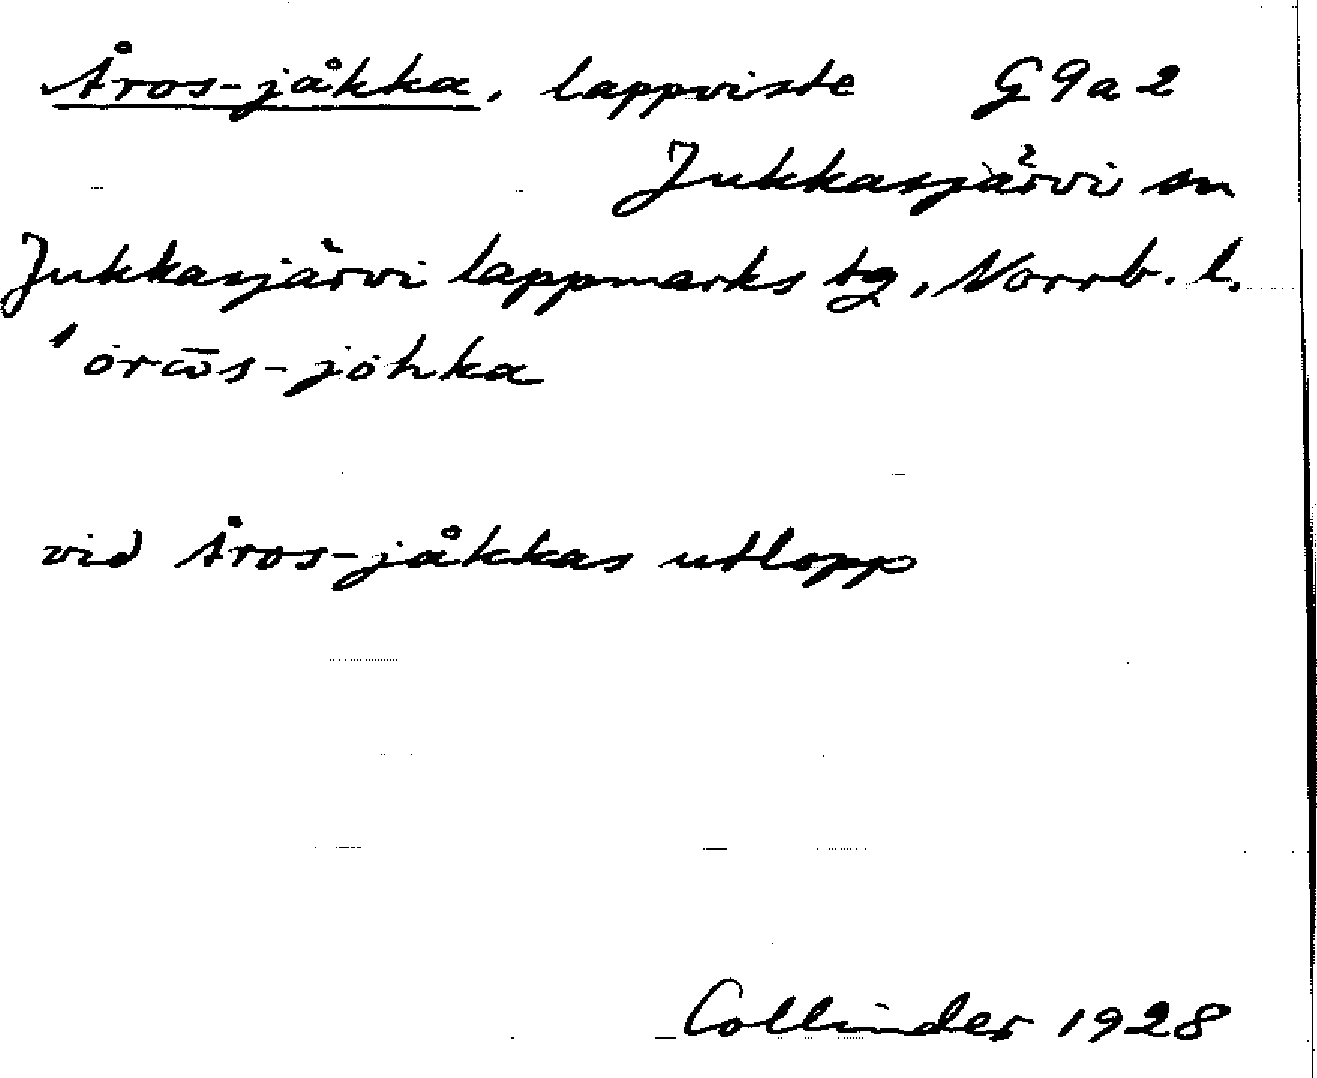 Åros-jåkka, lappviste G9a2
Jukkasjärvi sn
Jukkasjärvi lappmarks tg, Norrb. l.
ˈȯrω̄s-jȯhka
vid Åros-jåkkas utlopp
Collinder 1928